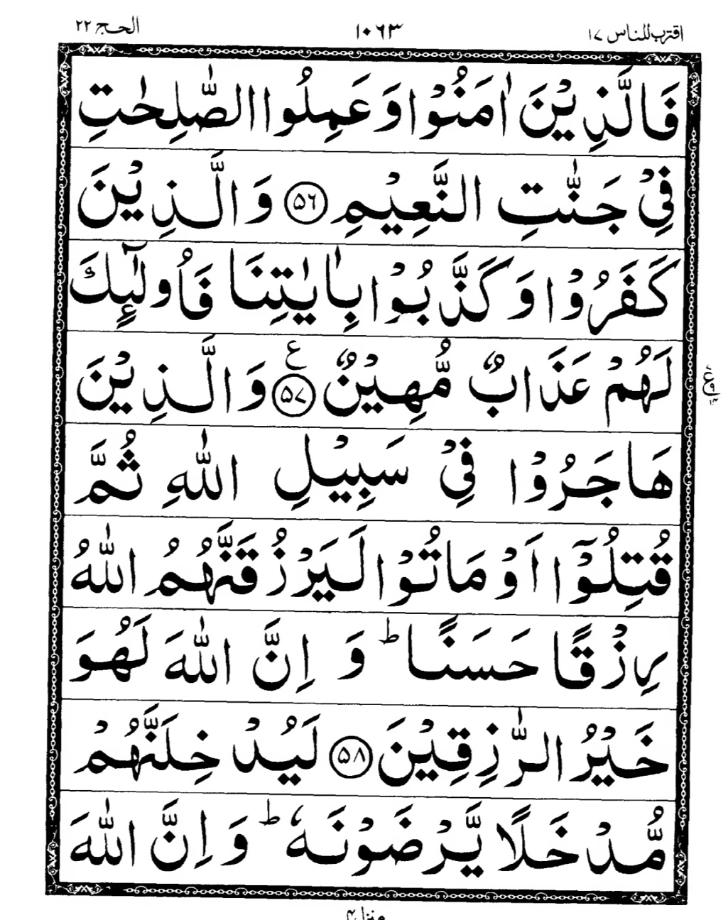 اقترب للناس ١٧ ١٠٦٣ الحج ٢٢
فَالَّذِيْنَ اٰمَنُوْا وَعَمِلُوا الصّٰلِحٰتِ
فِيْ جَنّٰتِ النَّعِيْمِ ۝۵۶ وَالَّذِيْنَ
كَفَرُوْا وَكَذَّبُوْا بِاٰيٰتِنَا فَاُولٰٓئِكَ
لَهُمْ عَذَابٌ مُّهِيْنٌ ۝۵۷ ع وَالَّذِيْنَ
هَاجَرُوْا فِيْ سَبِيْلِ اللّٰهِ ثُمَّ
قُتِلُوْٓا اَوْ مَاتُوْا لَيَرْزُقَنَّهُمُ اللّٰهُ
رِزْقًا حَسَنًا ؕ وَ اِنَّ اللّٰهَ لَهُوَ
خَيْرُ الرّٰزِقِيْنَ ۝۵۸ لَيُدْخِلَنَّهُمْ
مُّدْخَلًا يَّرْضَوْنَهٗ ؕ وَاِنَّ اللّٰهَ
منزل ۴